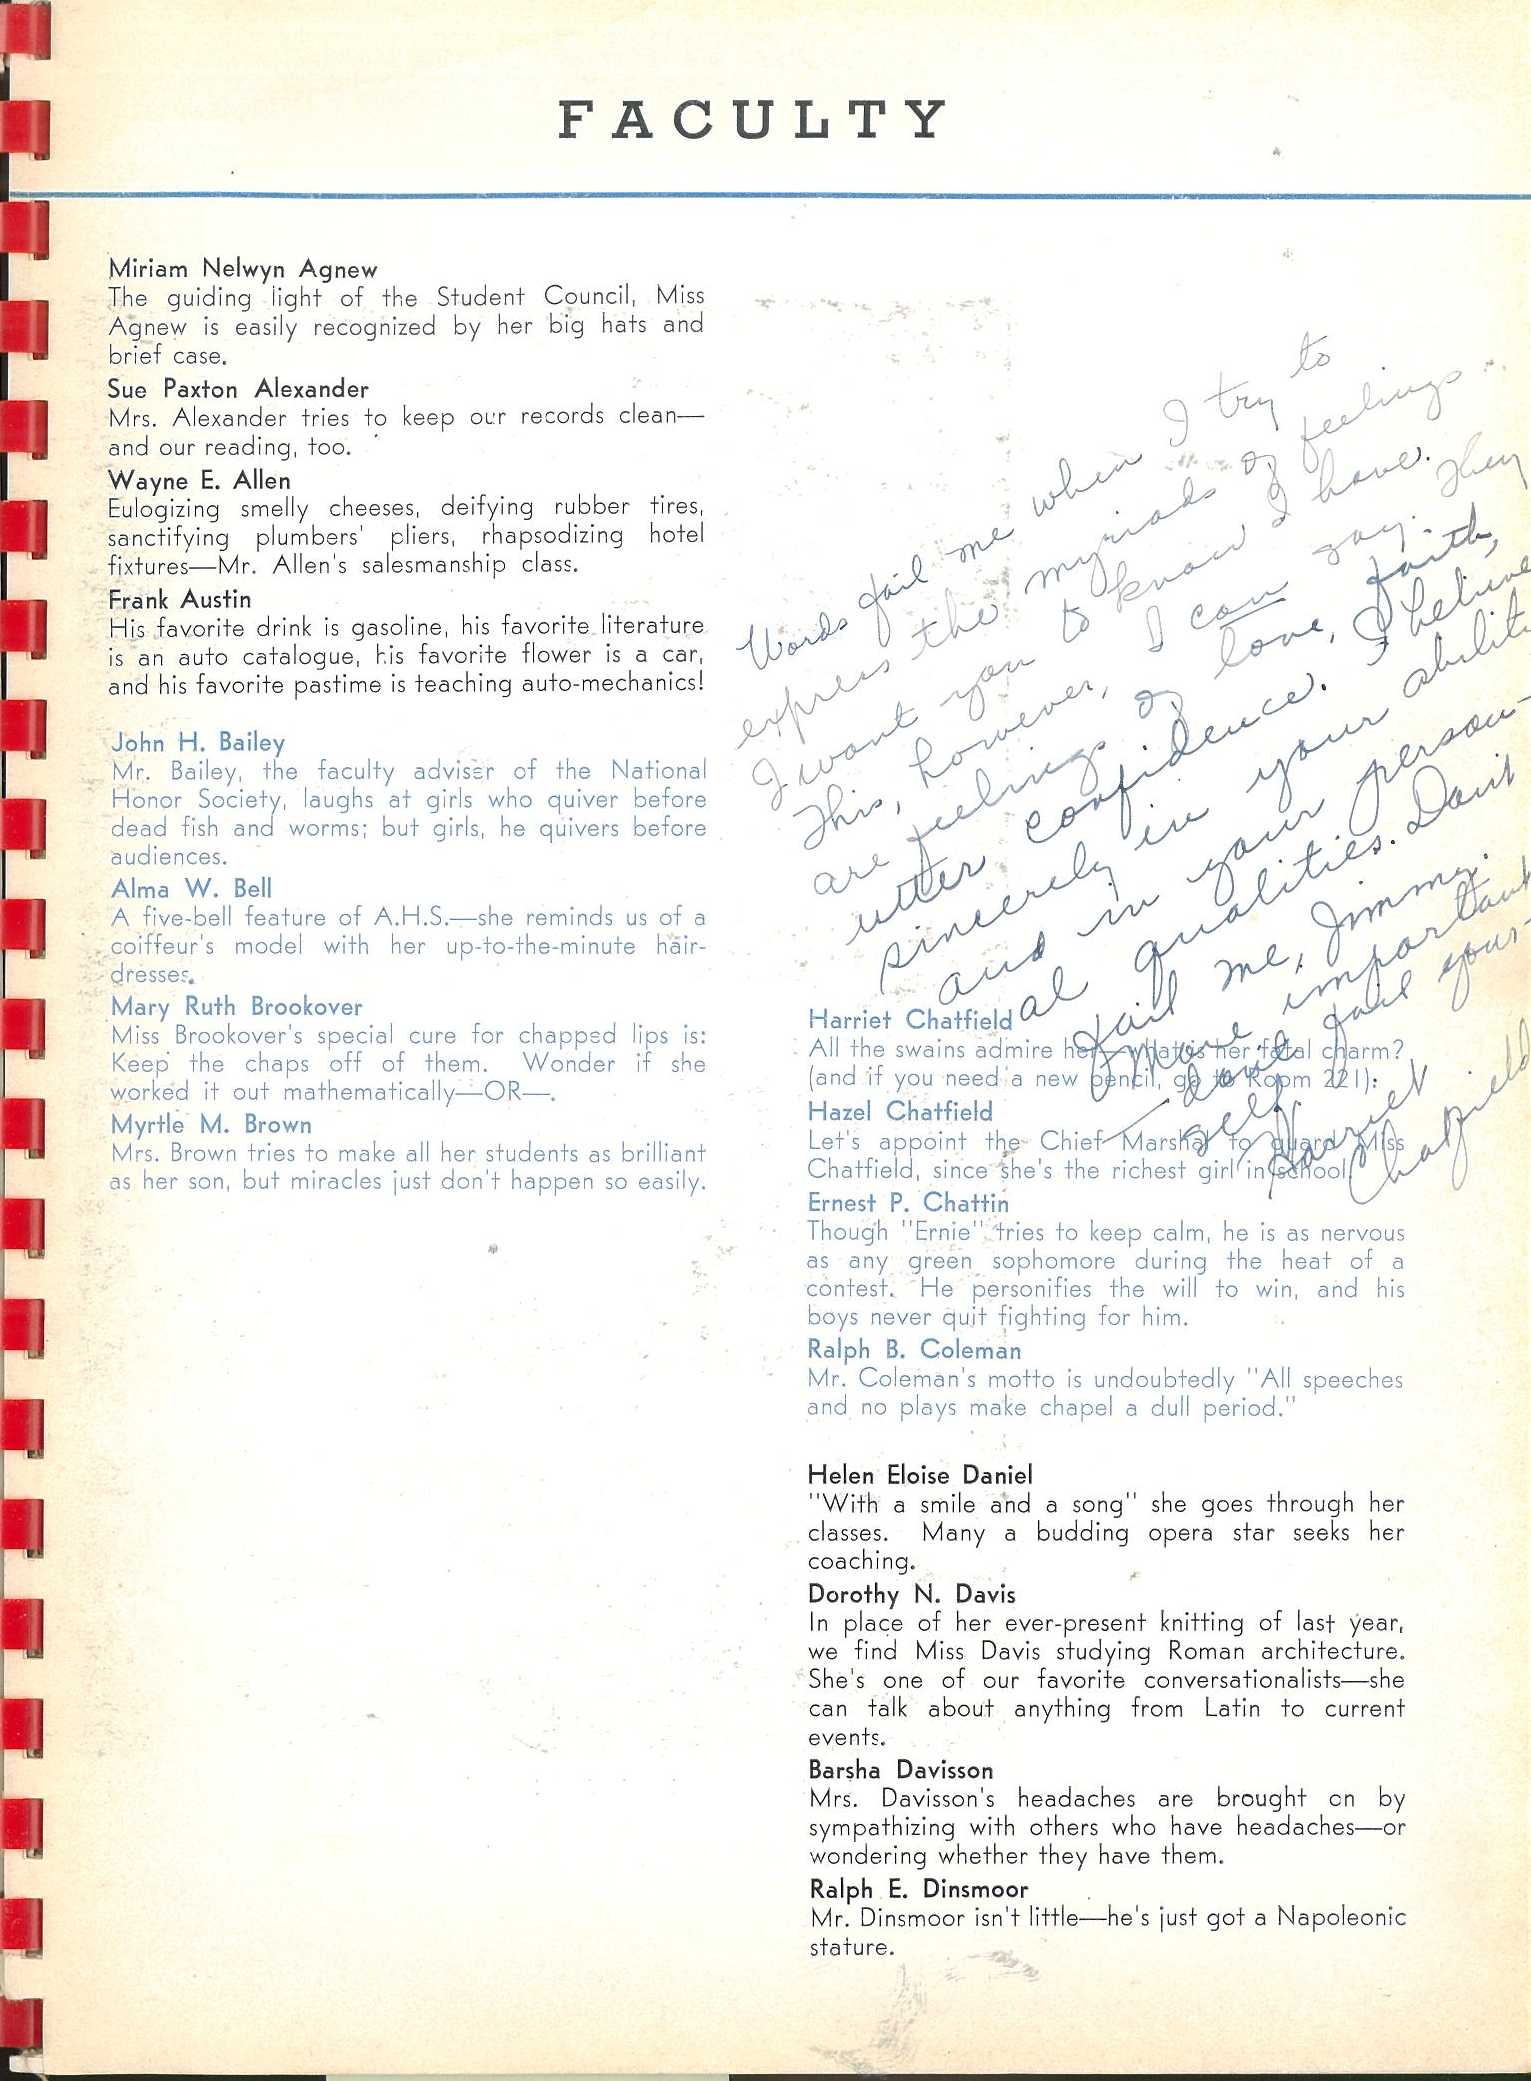 FACULTY
Miriam Nelwyn Agnew
The guiding light of the Student Council, Miss
Agnew is easily recognized by her big hats and
brief case.
Sue Paxton Alexander
Mrs. Alexander tries to keep our records clean—
and our reading, too.
Wayne E. Allen
Eulogizing smelly cheeses, deifying rubber tires,
sanctifying plumbers' pliers, rhapsodizing hotel
fixtures—Mr. Allen's salesmanship class.
Frank Austin
His favorite drink is gasoline, his favorite literature
is an auto catalogue, his favorite flower is a car,
and his favorite pastime is teaching auto-mechanics!
John H. Bailey
Mr. Bailey, the faculty adviser of the National
Honor Society, laughs at girls who quiver before
dead fish and worms; but girls, he quivers before
audiences.
Alma W. Bell
A five-bell feature of A.H.S.—she reminds us of a
coiffeur's model with her up-to-the-minute hair-
dresses.
Mary Ruth Brookover
Miss Brookover's special cure for chapped lips is:
Keep the chaps off of them. Wonder if she
worked it out mathematically—OR—.
Myrtle M. Brown
Mrs. Brown tries to make all her students as brilliant
as her son, but miracles just don't happen so easily.
Words fail me when I try to
express the myriads of feelings
I want you to know I have.
This, however, I can say. They
are feelings of love, faith,
utter confidence. I believe
sincerely in your ability
and in your person-
al qualities. Don't
fail me, Jimmy.
More important
—don't fail your-
self.
Harriet Chatfield
Harriet Chatfield
All the swains admire her—what is her fatal charm?
(and if you need a new pencil, go to Room 221).
Hazel Chatfield
Let's appoint the Chief Marshal to guard Miss
Chatfield, since she's the richest girl in school.
Ernest P. Chattin
Though "Ernie" tries to keep calm, he is as nervous
as any green sophomore during the heat of a
contest. He personifies the will to win, and his
boys never quit fighting for him.
Ralph B. Coleman
Mr. Coleman's motto is undoubtedly "All speeches
and no plays make chapel a dull period."
Helen Eloise Daniel
"With a smile and a song" she goes through her
classes. Many a budding opera star seeks her
coaching.
Dorothy N. Davis
In place of her ever-present knitting of last year,
we find Miss Davis studying Roman architecture.
She's one of our favorite conversationalists—she
can talk about anything from Latin to current
events.
Barsha Davisson
Mrs. Davisson's headaches are brought on by
sympathizing with others who have headaches—or
wondering whether they have them.
Ralph E. Dinsmoor
Mr. Dinsmoor isn't little—he's just got a Napoleonic
stature.